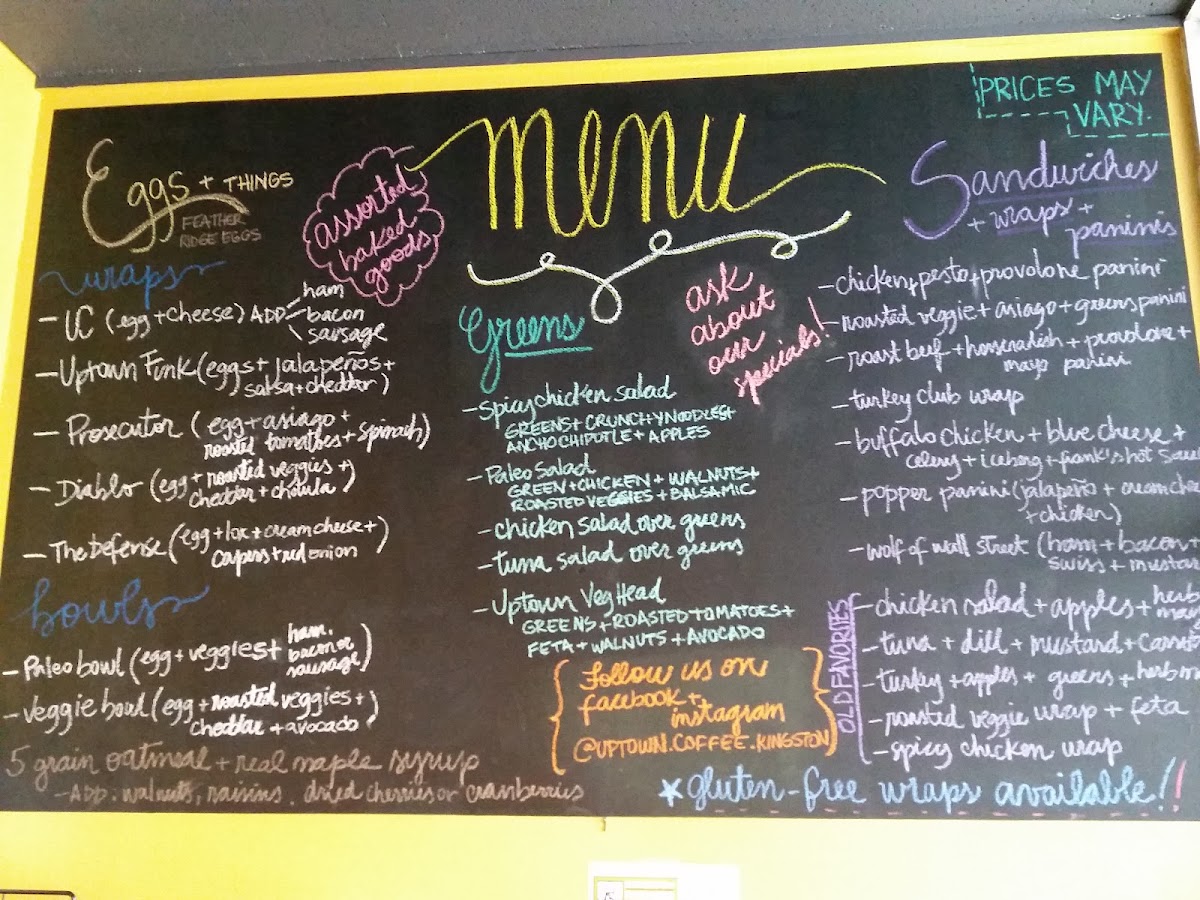 PRICES MAY
VARY.
menu
Eggs + THINGS
FEATHER
RIDGE EGGS
assorted
baked
goods
wraps
- UC (egg + cheese) ADD ham
bacon
sausage
- Uptown Funk (eggs + jalapeños +
salsa + cheddar)
- Prosecutor (egg + asiago +
roasted tomatoes + spinach)
- Diablo (egg + roasted veggies +
cheddar + cholula)
- The Defense (egg + lox + cream cheese +
capers + red onion
bowls
- Paleo bowl (egg + veggies + ham,
bacon or
sausage)
- Veggie bowl (egg + roasted veggies +
cheddar + avocado)
5 grain oatmeal + real maple syrup
- ADD: walnuts, raisins, dried cherries or cranberries
Greens
- Spicy chicken salad
GREENS + CRUNCHY NOODLES +
ANCHO CHIPOTLE + APPLES
- Paleo salad
GREEN + CHICKEN + WALNUTS +
ROASTED VEGGIES + BALSAMIC
- chicken salad over greens
- tuna salad over greens
- Uptown Veg Head
GREENS + ROASTED TOMATOES +
FETA + WALNUTS + AVOCADO
ask
about
our
specials!
Follow us on
facebook +
instagram
@UPTOWN.COFFEE.KINGSTON
Sandwiches
+ wraps +
paninis
- chicken + pesto + provolone panini
- roasted veggie + asiago + greens panini
- roast beef + horseradish + provolone +
mayo panini
- turkey club wrap
- buffalo chicken + blue cheese +
celery + iceberg + frank's hot sauc
- popper panini (jalapeño + cream chee
+ chicken)
- wolf of wall street (ham + bacon +
swiss + mustar
OLD FAVORITES
- chicken salad + apples + herb
may
- tuna + dill + mustard + carrot
- turkey + apples + greens + herb m
- roasted veggie wrap + feta
- spicy chicken wrap
* gluten-free wraps available!!